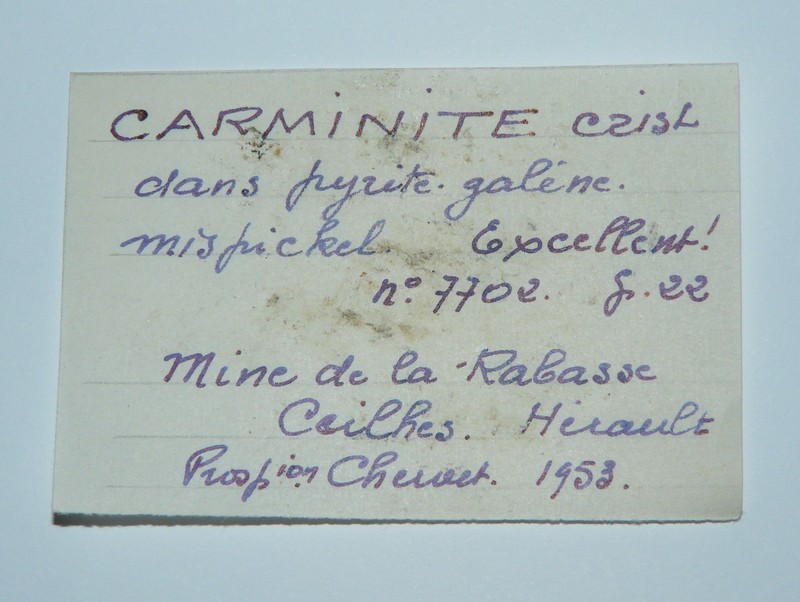 CARMINITE crist
dans pyrite. galène.
mispickel. Excellent!
n°. 7702. G. 22
Mine de la Rabasse
Ceilhes. Hérault
Prosp^ion Chervet. 1953.